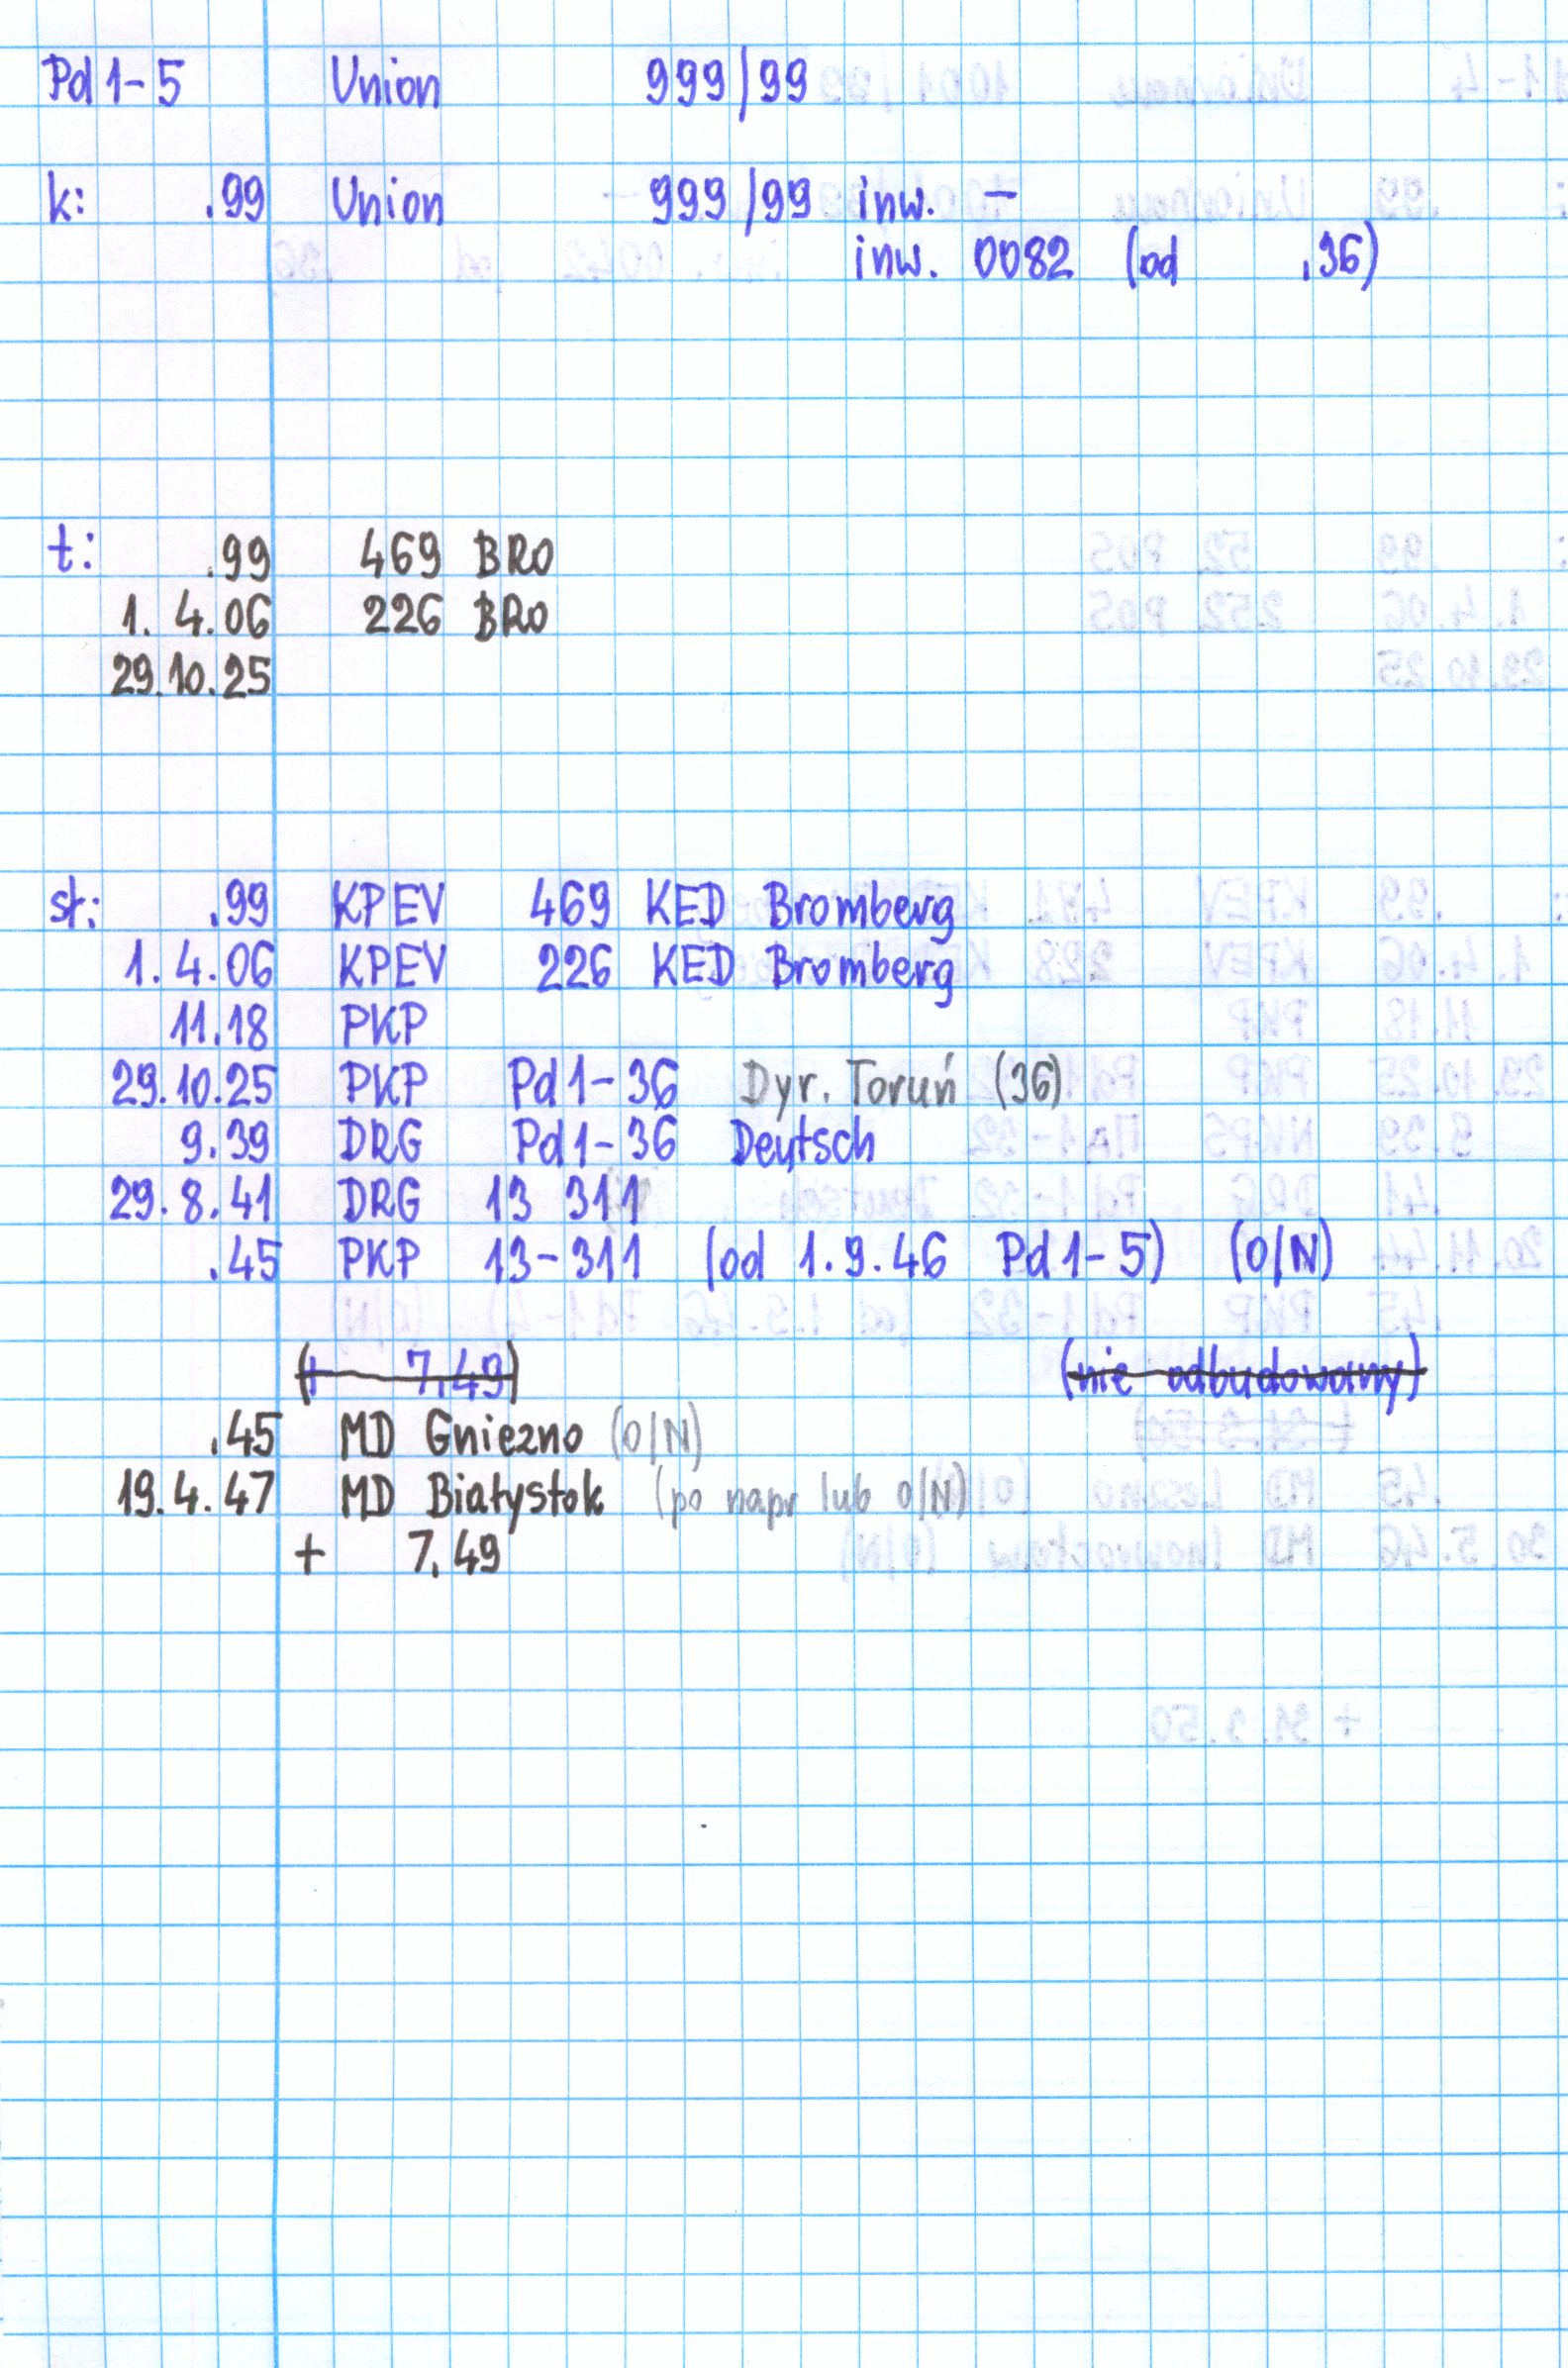 Pd1-5 Union 999/99
k: .99 Union 999/99 inw. -
inw. 0082 (od .36)
t: .99 469 BRO
1.4.06 226 BRO
29.10.25
st: .99 KPEV 469 KED Bromberg
1.4.06 KPEV 226 KED Bromberg
11.18 PKP
29.10.25 PKP Pd1-36 Dyr. Toruń (36)
9.39 DRG Pd1-36 Deutsch
29.8.41 DRG 13 311
.45 PKP 13-311 (od 1.9.46 Pd1-5) (O/N)
(+ 7.49) (nie odbudowany)
.45 MD Gniezno (O/N)
19.4.47 MD Białystok (po napr lub O/N)
+ 7.49